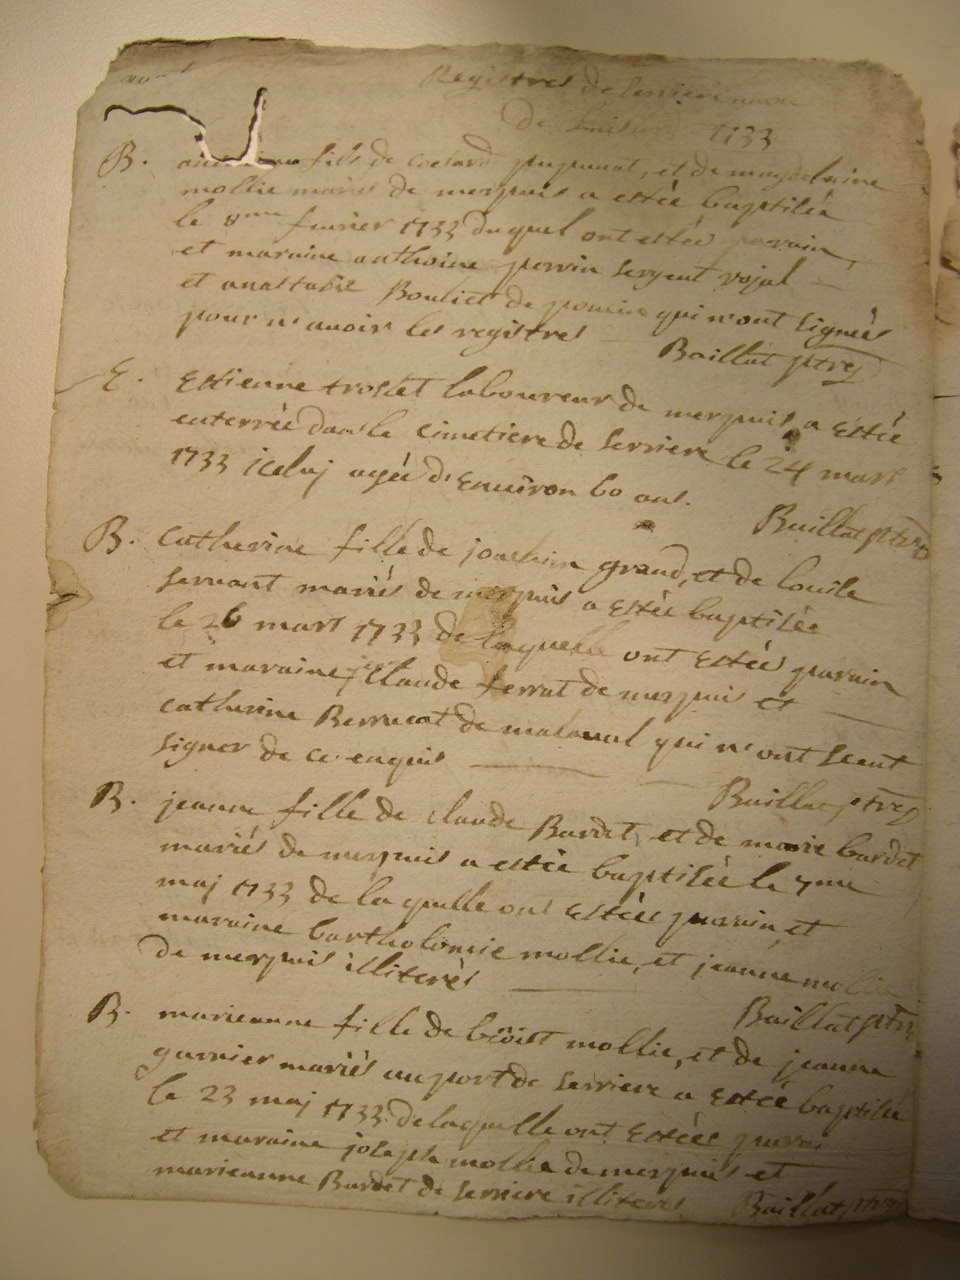 Registres de Serriere
de 1733
B. fils de pugunat, et de magdeleine
mollie mariés de merpuis a estée baptisée
le 8me feurier 1733 duquel ont estée parain
et maraine anthoine perrin sergent rojal
et anastasie Bouliet de poncin qui n'ont signés
pour n'auoir les registres
Baillat ptre
E. Estienne trollet laboureur de merpuis a estée
enterrée dans le cimetiere de serriere le 24 mars
1733 iceluj agée d'enuiron 60 ans.
Baillat ptre
B. Catherine fille de joachim grand, et de louise
seruant mariés de merpuis a estée baptisée
le 26 mars 1733 de laquelle ont estées parain
et maraine claude ferrat de merpuis et
catherine Berrucat de malaual qui n'ont sceut
signer de ce enquis
Baillat ptre
B. jeanne fille de claude Bardet, et de marie bardet
mariés de merpuis a estée baptisée le 7me
maj 1733 de la quelle ont estées parain, et
maraine bartholomie mollie, et jeanne mollie
de merpuis illiterés
Baillat ptre
B. marieanne fille de bëoist mollie, et de jeanne
garnier mariés au port de serriere a estée baptisée
le 23 maj 1733 de laquelle ont estées parain
et maraine joseph mollie de merpuis et
marieanne Bardet de serriere illiteres
Baillat ptre